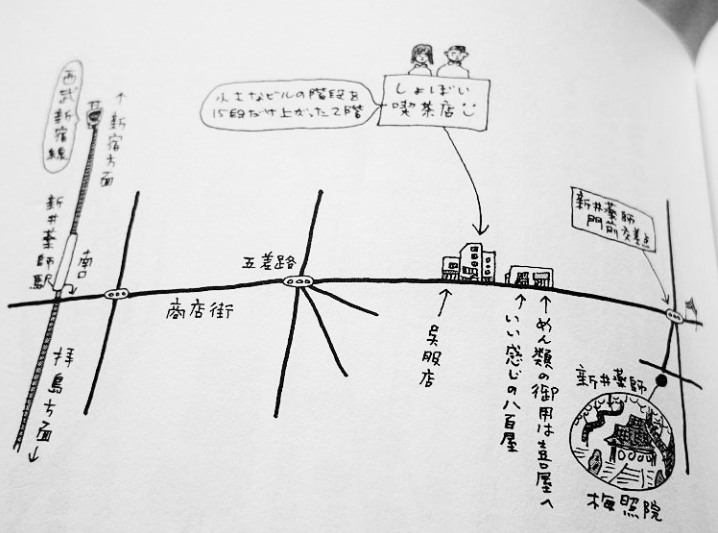 西武新宿線
↑新宿方面
新井薬師駅
南口
拝島方面↓
商店街
五差路
小さなビルの階段を
15段だけ上がった2階
しょぼい
喫茶店
呉服店
いい感じの八百屋
めん類の御用は喜屋へ
新井薬師
門前交差点
新井薬師
梅照院